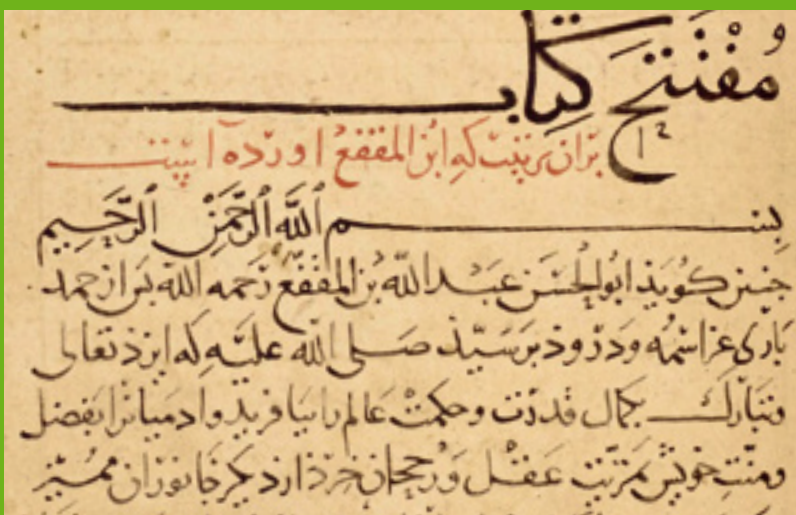 مفتتح کتاب
بران ترتیب که ابن المقفع اورده است
بسم الله الرحمن الرحیم
جنین کویذ ابوالحسن عبدالله بن المقفع رحمه الله بس از حمد
باری عز اسمه و درود بر سیذ صلی الله علیه که ایزذ تعالی
وتبارک بکمال قدرت و حکمت عالم را بیافرید و ادمیانرا بفضل
ومنت خویش بمزیت عقل و رجحان خرذ از دیکر جانوران ممیز